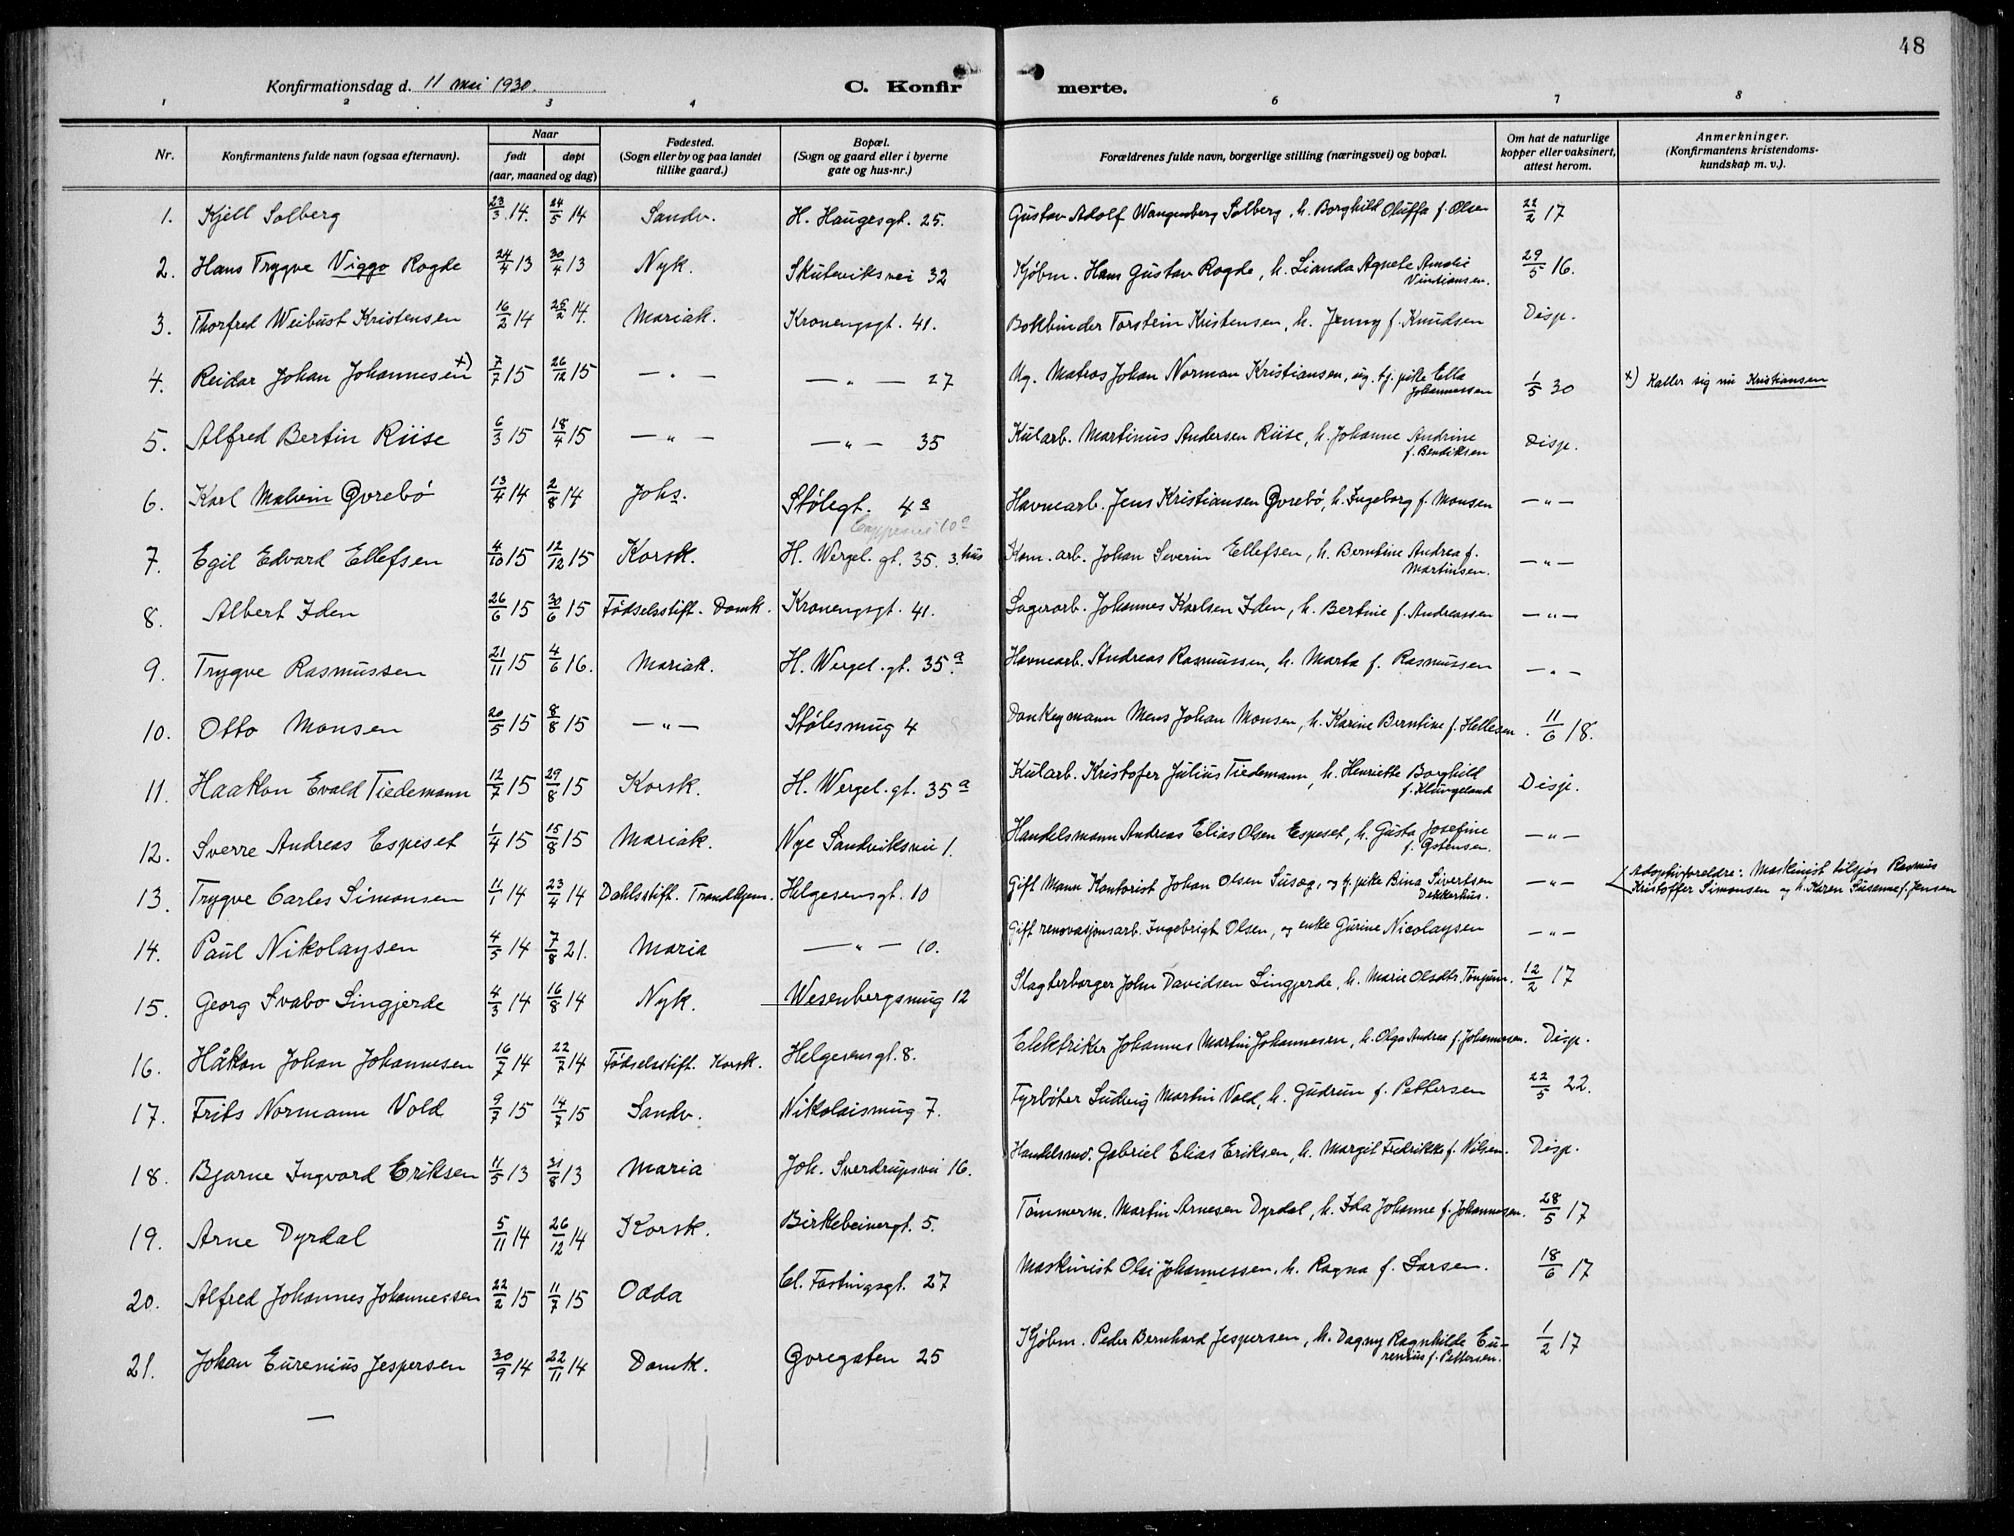 48
Konfirmationsdag d. 11 mai 1930.
C. Konfirmerte.
1 2 3 4 6 7 8
Nr. Konfirmantens fulde navn (ogsaa efternavn). Naar født døpt (aar, maaned og dag) Fødested. (Sogn eller by og paa landet tillike gaard.) Bopæl. (Sogn og gaard eller i byerne gate og hus-nr.) Forældrenes fulde navn, borgerlige stilling (næringsvei) og bopæl. Om hat de naturlige kopper eller vaksinert, attest herom. Anmerkninger. (Konfirmantens kristendoms-kundskap m. v.).
1. Kjell Solberg 23/3 14. 24/5 14 Sandv. H. Haugesgt. 25. Gustav Adolf Wangensberg Solberg, h. Borghild Oluffa f. Olsen 22/2 17
2. Hans Trygve Viggo Rogde 24/4 13 30/4 13 Nyk. Skuteviksvei 32 Kjøbm. Hans Gustav Rogde, h. Lianda Agnete Amalie Vindiansen. 29/5 16.
3. Thorfred Weibust Kristensen 16/2 14 25/2 14. Mariak. Kronengsgt. 41. Bokbinder Torstein Kristensen, h. Jenny f. Knudsen Disp.
4. Reidar Johan Johannesen x) 7/7 15 26/12 15 — " — — " — 27 Ug. Matros Johan Norman Kristiansen, ug. tj. pike Ella Johannessen 1/5 30 x) Kaller sig nu Kristiansen
5. Alfred Bertin Riise 6/3 15 18/4 15 — " — — " — 35 Kularb. Martinus Andersen Riise, h. Johanne Andrine f. Bendiksen Disp.
6. Karl Malvin Øvrebö 13/4 14 2/8 14 Johs. Stølegt. 4a Havnearb. Jens Kristiansen Øvrebö, h. Ingeborg f. Monsen — " —
7. Egil Edvard Ellefsen 4/10 15 12/12 15 Korsk. H. Wergel. gt. 35. 3. hus Kom. arb. Johan Severin Ellefsen, h. Berntine Andrea f. Martinsen. — " —
8. Albert Iden 26/6 15 30/6 15 Fødselsstift. Domk. Kronengsgt. 41. Lagerarb. Johannes Karlsen Iden, h. Bertine f. Andreassen — " —
9. Trygve Rasmussen 21/11 15 4/6 16. Mariak. H. Wergel. gt. 35a. Havnearb. Andreas Rasmussen, h. Marta f. Rasmussen — " —
10. Otto Monsen 20/5 15 8/8 15 — " — Stølesmug 4 Donkeymann Mons Johan Monsen, h. Karine Berntine f. Hellesen. 11/6 18.
11. Haakon Evald Tiedemann 12/7 15 29/8 15 Korsk. H. Wergel. gt. 35a Kularb. Kristofer Julius Tiedemann, h. Henriette Borghild f. Klungeland Disp.
12. Sverre Andreas Espeset 1/4 15 15/8 15 Mariak. Nye Sandviksvei 1. Handelsmann Andreas Elias Olsen Espeset, h. Gusta Josefine f. Østensen. — " —
13. Trygve Carles Simonsen 11/1 14 23/4 14 Dahlsstift. Trondhjem. Helgesensgt. 10 Gift Mann Kontorist Johan Olsen Susæg, og tj. pike Bina Sivertsen Dekkerhus. — " — Adoptivforeldre: Maskinist tilsjøs Rasmus Kristoffer Simonsen og h. Karen Susanne f. Jensen
14. Paul Nikolaysen 4/5 14 7/8 21. Maria — " — 10. Gift renovasjonsarb. Ingebrigt Olsen, og enke Gurine Nicolaysen — " —
15. Georg Svabo Lingjerde 4/3 14 16/8 14 Nyk. Wesenbergsmug 12 Slagterborger John Davidsen Lingjerde, h. Marie Olsdtr. Tönjum. 12/2 17
16. Håkon Johan Johannesen 16/7 14 22/7 14 Fødselsstift. Korsk. Helgesensgt. 8. Elektriker Johannes Martin Johannesen, h. Olga Andrea f. Johannesen. Disp.
17. Frits Normann Vold 9/7 15 14/7 15 Sandv. Nikolaismug 7. Fyrbøter Ludvig Martin Vold, h. Gudrun f. Pettersen 22/5 22.
18. Bjarne Ingvard Eriksen 11/5 13 31/8 13 Maria Joh. Sverdrupsvei 16. Handelsmd. Gabriel Elias Eriksen, h. Margit Fredrikke f. Nilsen. Disp.
19. Arne Dyrdal 5/11 14 26/12 14 Korsk. Birkebeinergt. 5. Tømmerm. Martin Arnesen Dyrdal, h. Ida Johanne f. Johannesen. 28/5 17
20. Alfred Johannes Johannessen 22/2 15 11/7 15 Odda Cl. Fastingsgt. 27 Maskinist Olai Johannessen, h. Ragna f. Larsen. 18/6 17
21. Johan Eurenius Jespersen 30/9 14 22/11 14 Domk. Øvregaten 25 Kjøbm. Peder Bernhard Jespersen, h. Dagny Ragnhilde Eurenius f. Pettersen. 1/2 17